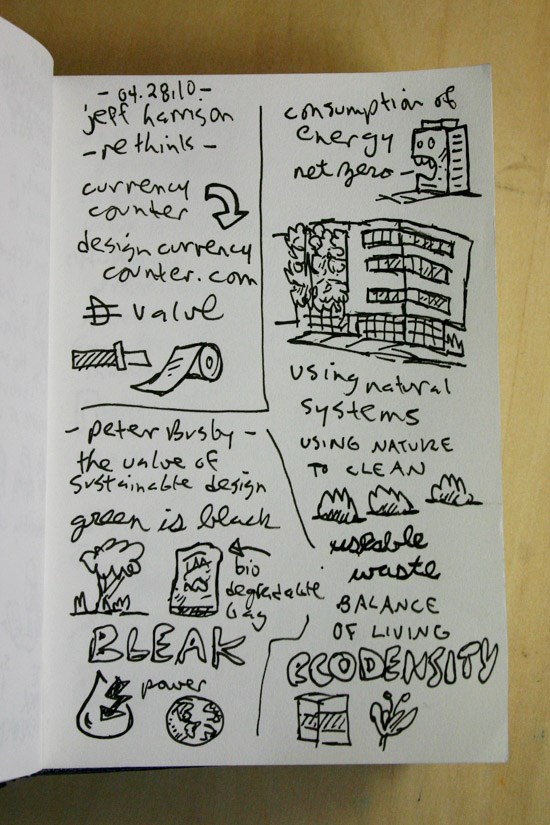 - 04.28.10 -
jeff harrison
- rethink -
currency
counter
design currency
counter.com
value
- peter Busby -
the value of
sustainable design
green is black
bio
degradable
bag
BLEAK
power
consumption of
energy
net zero
using natural
systems
USING NATURE
TO CLEAN
useable
waste
BALANCE
OF LIVING
ECODENSITY